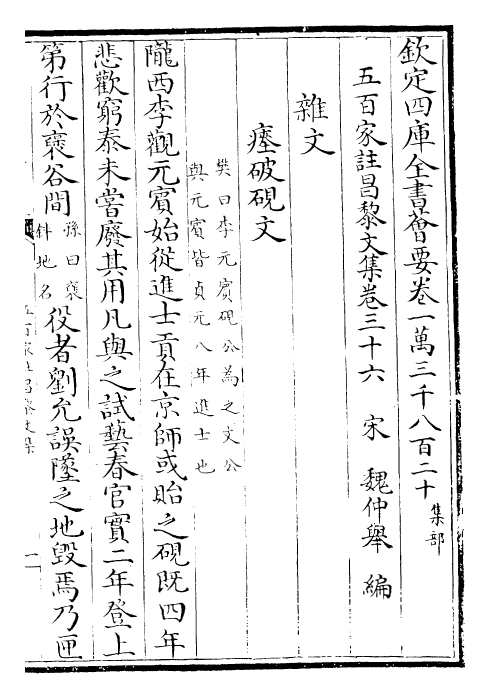 欽定四庫全書薈要卷一萬三千八百二十 集部
五百家註昌黎文集卷三十六 宋 魏仲舉 編
雜文
瘞破硯文
樊曰李元賓硯公為之文公
與元賓皆貞元八年進士也
隴西李觀元賓始從進士貢在京師或貽之硯既四年
悲歡窮泰未嘗廢其用凡與之試藝春官實二年登上
第行於褒谷間
孫曰褒
斜地名
役者劉允誤墜之地毀焉乃匣
五百家註昌黎文集
一